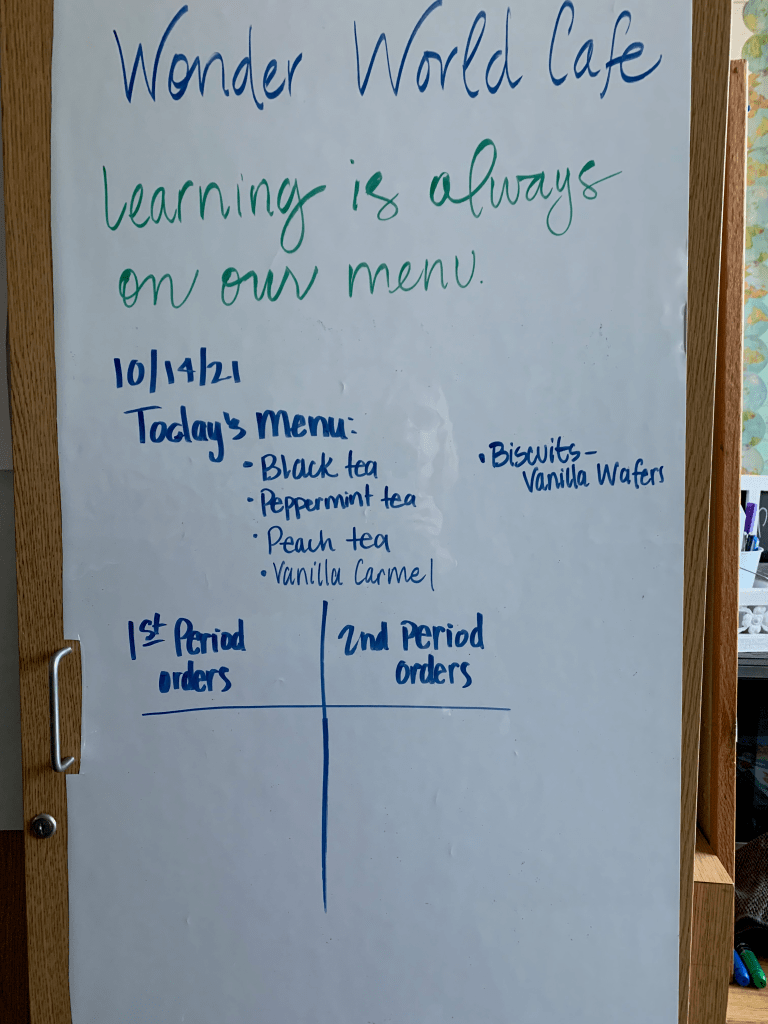 Wonder World Cafe
Learning is always
on our menu.
10/14/21
Today's Menu:
• Black tea
• Peppermint tea
• Peach tea
• Vanilla Carmel
• Biscuits-
Vanilla Wafers
1st Period
orders
2nd Period
orders